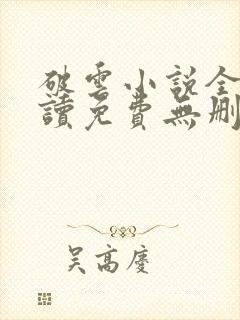 破雲小說全
讀免費無刪
吳高慶